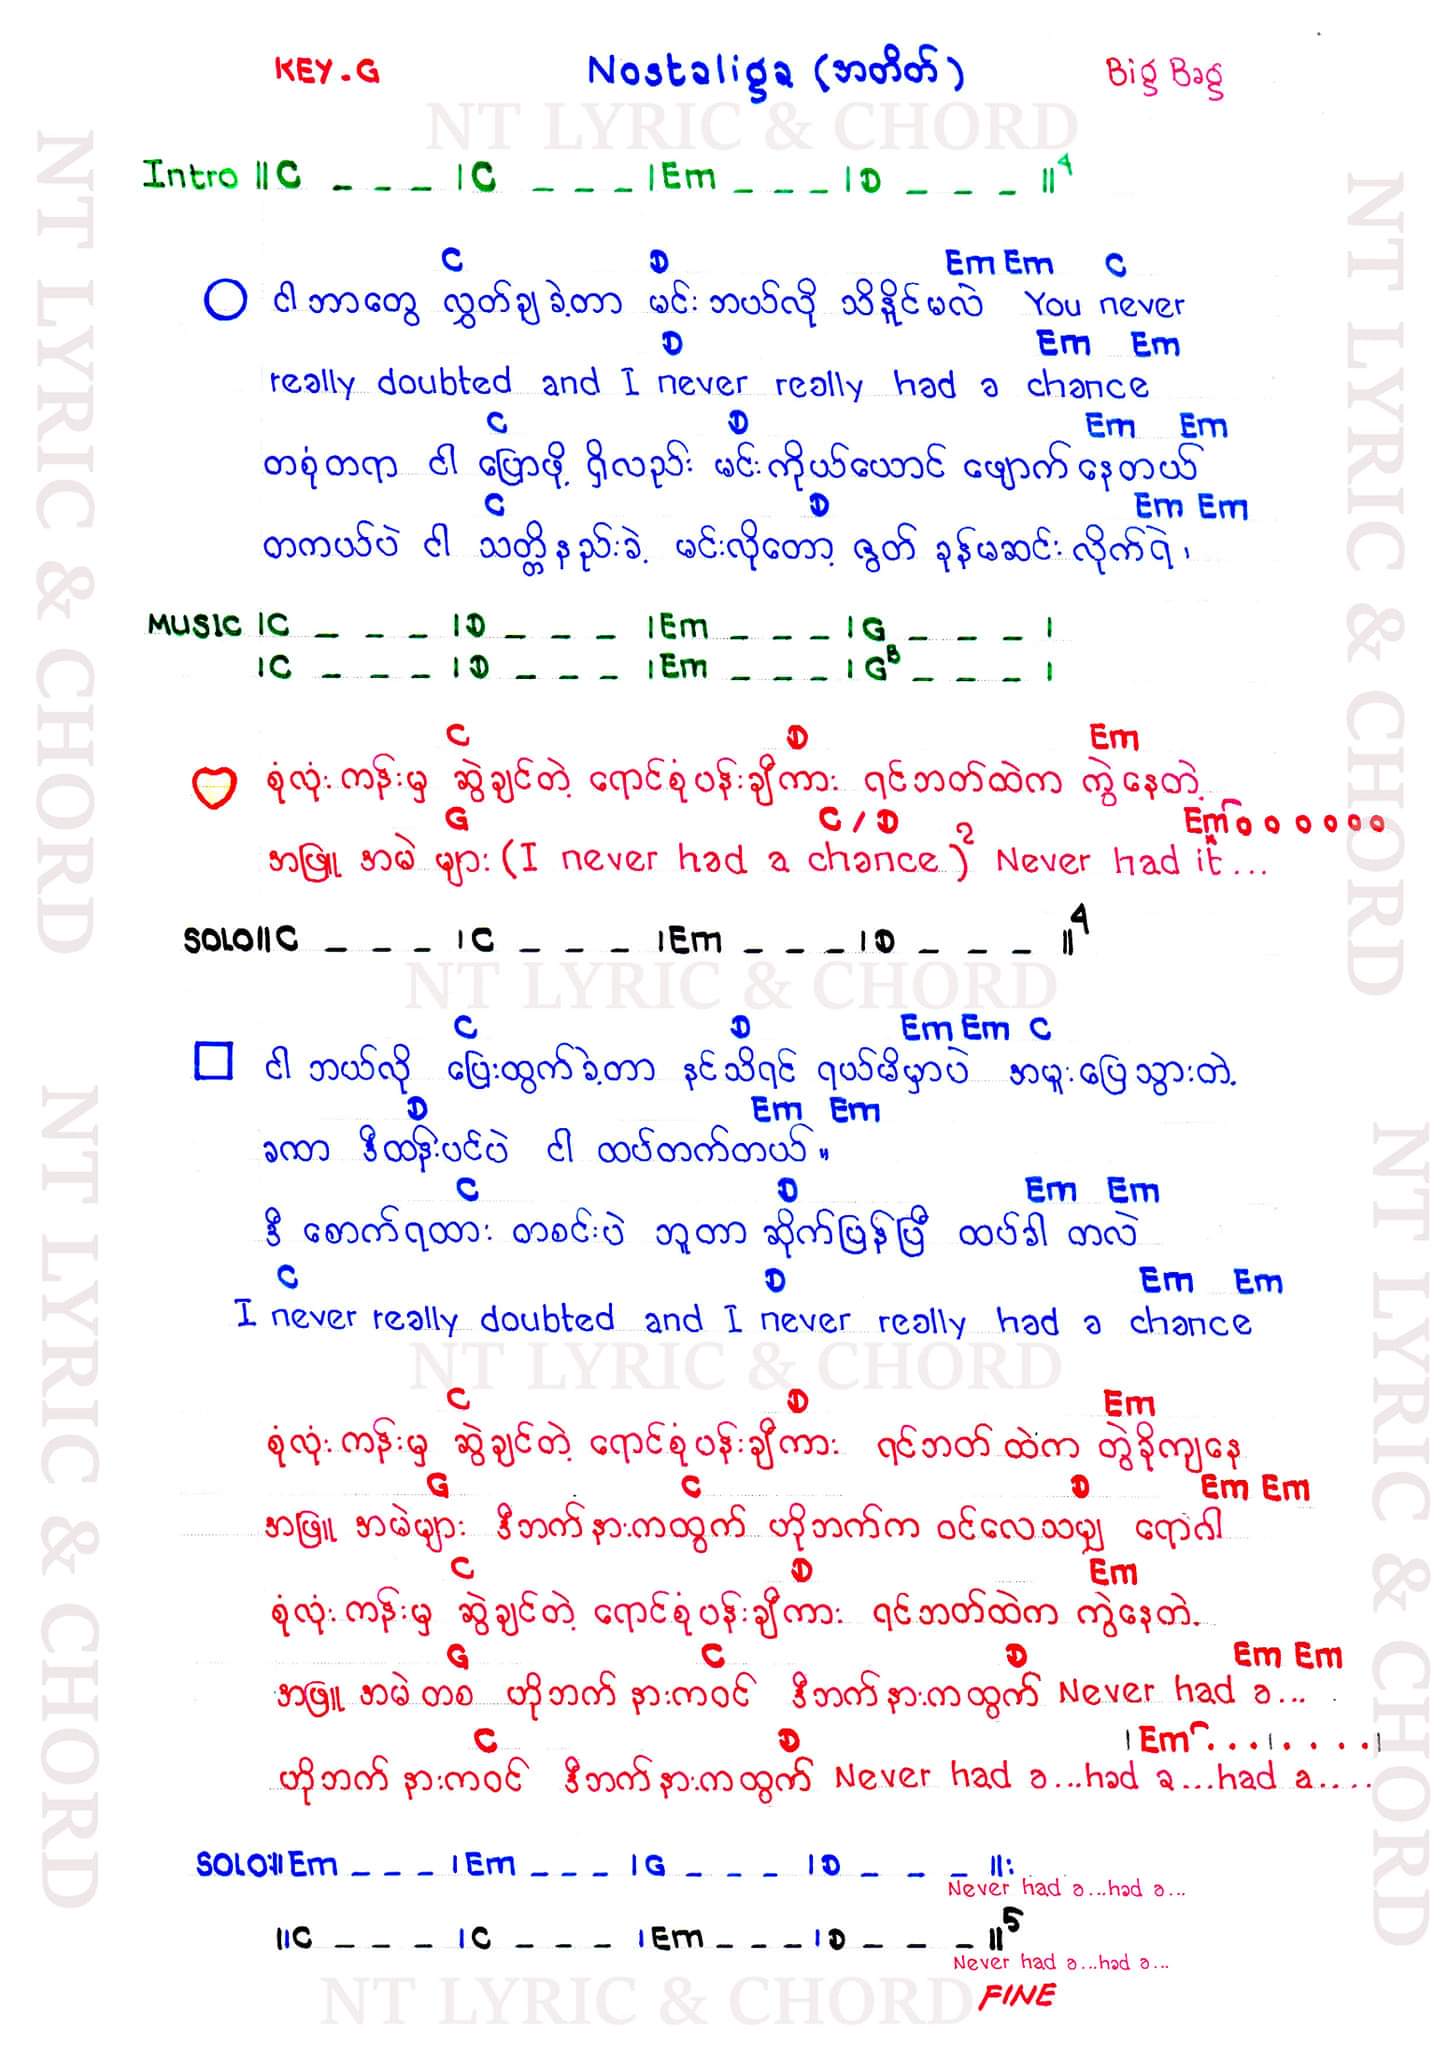 KEY.G Nostaliga (အတိတ်) Big Bag
NT LYRIC & CHORD
Intro ||C _ _ _ |C _ _ _ |Em _ _ _ |D _ _ _ ||4
C D Em Em C
ငါ ဘာတွေ လွှတ်ချ ခဲ့တာ မင်း ဘယ်လို သိနိူင်မလဲ You never
D Em Em
really doubted and I never really had a chance
C D Em Em
တစုံတရာ ငါ ပြောဖို့ ရှိလည်း မင်းကိုယ်ယောင် ဖျောက်နေတယ်
C D Em Em
တကယ်ပဲ ငါ သတ္တိနည်းခဲ့ မင်းလိုတော့ ဇွတ် ခုန်မဆင်းလိုက်ရဲ၊
MUSIC |C _ _ _ |D _ _ _ |Em _ _ _ |G _ _ _ |
|C _ _ _ |D _ _ _ |Em _ _ _ |GB _ _ _ |
C D Em
စုံလုံးကန်းမှ ဆွဲချင်တဲ့ ရောင်စုံပန်းချီကား ရင်ဘတ်ထဲက ကွဲနေတဲ့
G C / D Em o o o o o o
အဖြူ အမဲ များ (I never had a chance)2 Never had it...
SOLO ||C _ _ _ |C _ _ _ |Em _ _ _ |D _ _ _ ||4
NT LYRIC & CHORD
C D Em Em C
ငါ ဘယ်လို ပြေးထွက်ခဲ့တာ နင်သိရင် ရယ်မိမှာပဲ အမူးပြေသွားတဲ့
D Em Em
ခဏာ ဒီထန်းပင်ပဲ ငါ ထပ်တက်တယ်။
C D Em Em
ဒီ စောက်ရထား တစင်းပဲ ဘူတာ ဆိုက်ပြန်ပြီ ထပ်ခါ တလဲ
C D Em Em
I never really doubted and I never really had a chance
NT LYRIC & CHORD
C D Em
စုံလုံးကန်းမှ ဆွဲချင်တဲ့ ရောင်စုံပန်းချီကား ရင်ဘတ်ထဲက တွဲခိုကျနေ
G C D Em Em
အဖြူ အမဲများ ဒီဘက်နားကထွက် ဟိုဘက်က ဝင်လေသမျှ ရောဂါ
C D Em
စုံလုံးကန်းမှ ဆွဲချင်တဲ့ ရောင်စုံပန်းချီကား ရင်ဘတ်ထဲက ကွဲနေတဲ့
G C D Em Em
အဖြူ အမဲတစ ဟိုဘက်နားကဝင် ဒီဘက်နားကထွက် Never had a...
C D |Em . . . | . . . . |
ဟိုဘက်နားကဝင် ဒီဘက်နားကထွက် Never had a...had a...had a....
SOLO:||Em _ _ _ |Em _ _ _ |G _ _ _ |D _ _ _ ||:
Never had a...had a...
||C _ _ _ |C _ _ _ |Em _ _ _ |D _ _ _ ||5
Never had a...had a...
NT LYRIC & CHORD
FINE
NT LYRIC & CHORD
NT LYRIC & CHORD
NT LYRIC & CHORD
NT LYRIC & CHORD